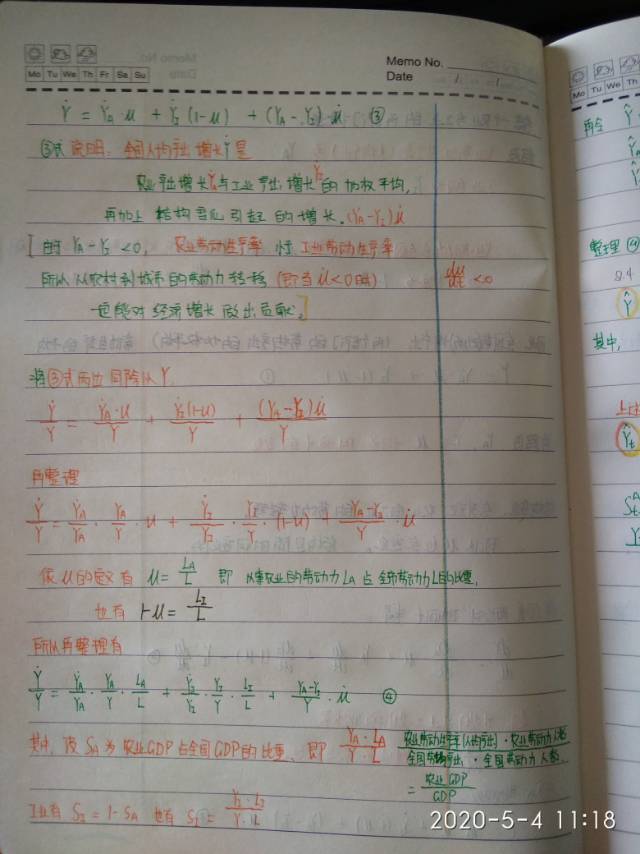 Memo No.
Date
Mo Tu We Th Fr Sa Su
Ẏ = Ẏ_A·u + Ẏ_I(1-u) + (Y_A-Y_I)·u̇ ③
③式说明:全国人均产出增长Ẏ是
农业产出增长Ẏ_A与工业产出增长Ẏ_I的加权平均,
再加上结构变化引起的增长.(Y_A-Y_I)u̇
[由Y_A-Y_I<0, 农业劳动生产率小于工业劳动生产率
所以从农村到城市的劳动力转移(即当u̇<0时) du/dt <0
也能对经济增长做出贡献.]
将③式两边同除以Y.
Ẏ/Y = Ẏ_A·u/Y + Ẏ_I(1-u)/Y + (Y_A-Y_I)u̇/Y
再整理
Ẏ/Y = Ẏ_A/Y_A · Y_A/Y · u + Ẏ_I/Y_I · Y_I/Y · (1-u) + Y_A-Y_I/Y · u̇
依u的定义有 u = L_A/L 即从事农业的劳动力L_A占全部劳动力L的比重,
也有 1-u = L_I/L
所以再整理有
Ẏ/Y = Ẏ_A/Y_A · Y_A/Y · L_A/L + Ẏ_I/Y_I · Y_I/Y · L_I/L + Y_A-Y_I/Y · u̇ ④
其中,设S_A为农业GDP占全国GDP的比重、即 Y_A·L_A/Y·L
农业劳动生产率(人均产出)·农业劳动力人数/全国人均产出·全国劳动力人数
= 农业GDP/GDP
工业有 S_I = 1-S_A 也有 S_I = Y_I·L_I/Y·L
再令
整理④
其中,
2020-5-4 11:18